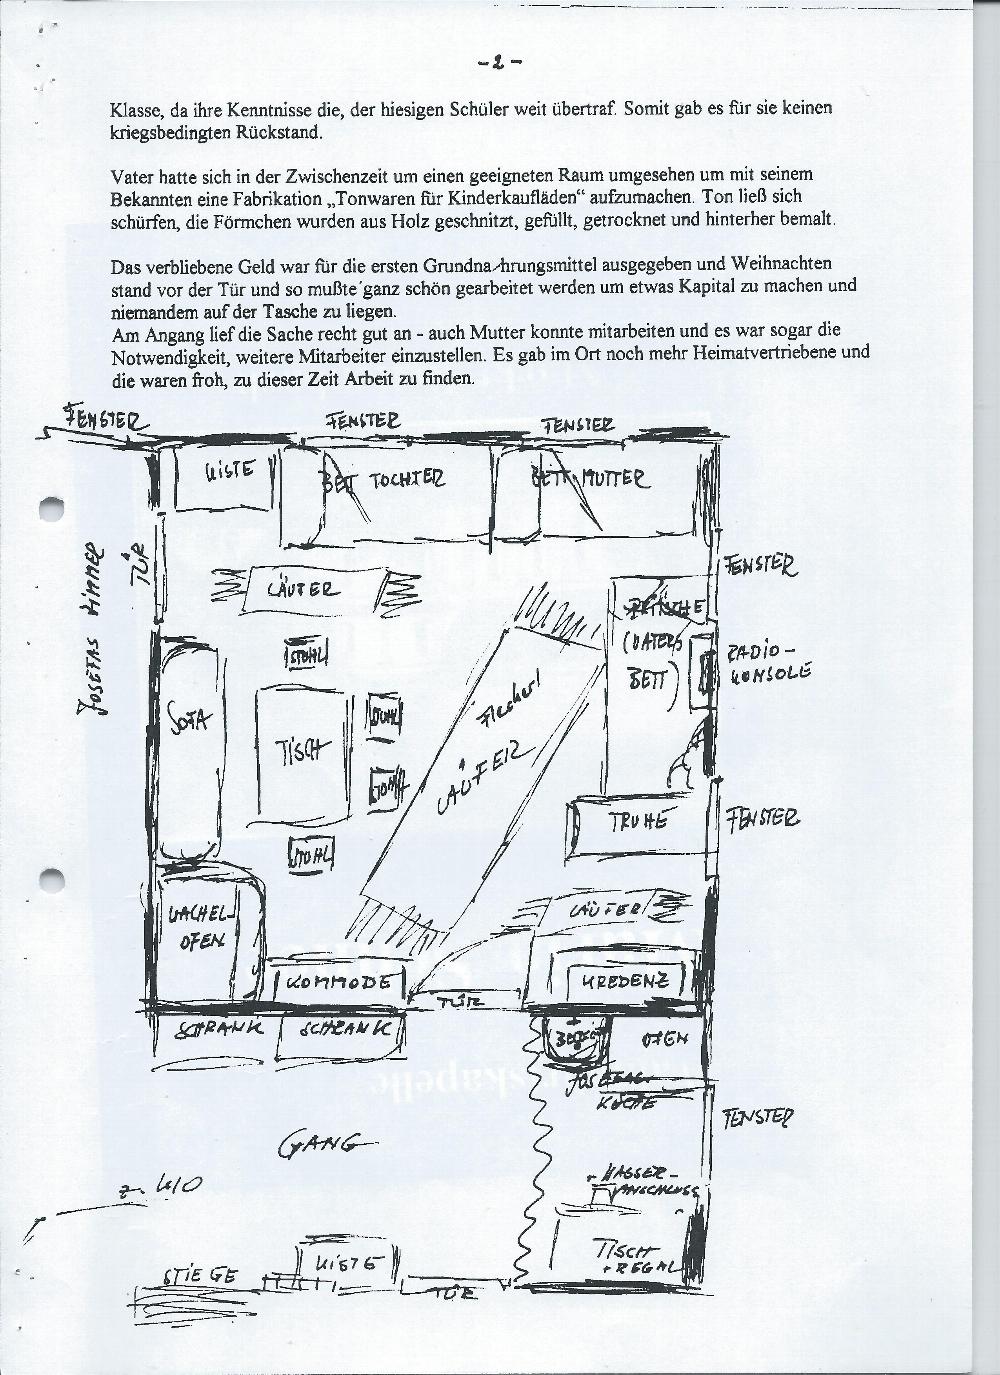 - 2 -
Klasse, da ihre Kenntnisse die, der hiesigen Schüler weit übertraf. Somit gab es für sie keinen
kriegsbedingten Rückstand.
Vater hatte sich in der Zwischenzeit um einen geeigneten Raum umgesehen um mit seinem
Bekannten eine Fabrikation „Tonwaren für Kinderkaufläden“ aufzumachen. Ton ließ sich
schürfen, die Förmchen wurden aus Holz geschnitzt, gefüllt, getrocknet und hinterher bemalt.
Das verbliebene Geld war für die ersten Grundnahrungsmittel ausgegeben und Weihnachten
stand vor der Tür und so mußte ganz schön gearbeitet werden um etwas Kapital zu machen und
niemandem auf der Tasche zu liegen.
Am Angang lief die Sache recht gut an - auch Mutter konnte mitarbeiten und es war sogar die
Notwendigkeit, weitere Mitarbeiter einzustellen. Es gab im Ort noch mehr Heimatvertriebene und
die waren froh, zu dieser Zeit Arbeit zu finden.
FENSTER
FENSTER
FENSTER
KISTE
BETT TOCHTER
BETT MUTTER
TÜR
JOSEFAS ZIMMER
FENSTER
LÄUFER
PRITSCHE
(VATERS
BETT)
RADIO-
KONSOLE
STUHL
SOFA
TISCH
STUHL
STUHL
STUHL
Fleckerl
LÄUFER
TRUHE
FENSTER
KACHEL-
OFEN
LÄUFER
KOMMODE
TÜR
KREDENZ
SCHRANK
SCHRANK
OFEN
JOSEFAS
KÜCHE
FENSTER
GANG
z. KLO
WASSER-
ANSCHLUSS
TISCH
+ REGAL
KISTE
STIEGE
TÜR